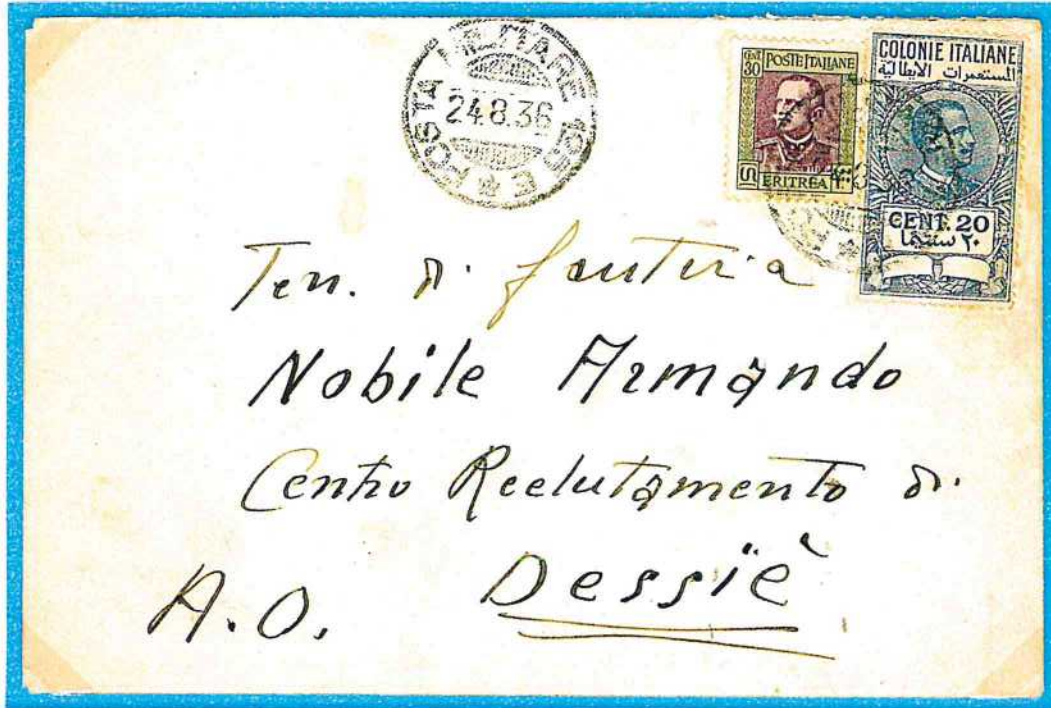 POSTA MILITARE 105 E
24.8.36
CENT. 30 POSTE ITALIANE
ERITREA
COLONIE ITALIANE
المستعمرات الايطالية
CENT. 20
٢٠ سنتيما
Ten. di fanteria
Nobile Armando
Centro Reclutamento di
A.O. Dessiè